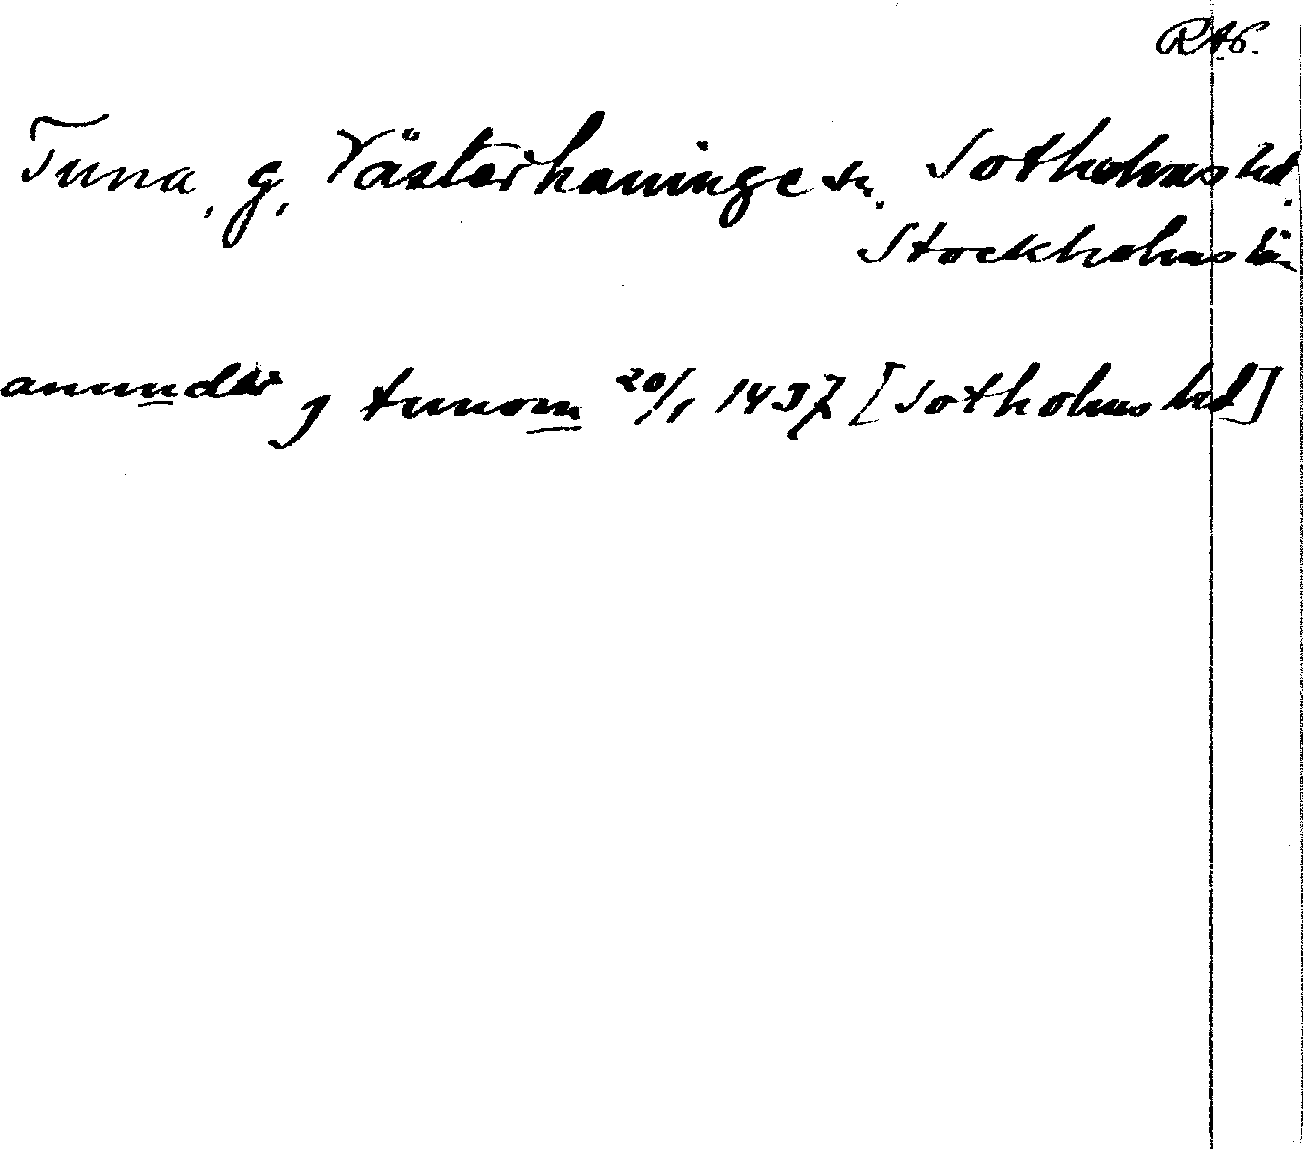 RA6.
Tuna, g, Västerhaninge sn. Sotholms hd.
Stockholms län
anundr j tunom 20/1 1437 [Sotholms hd]